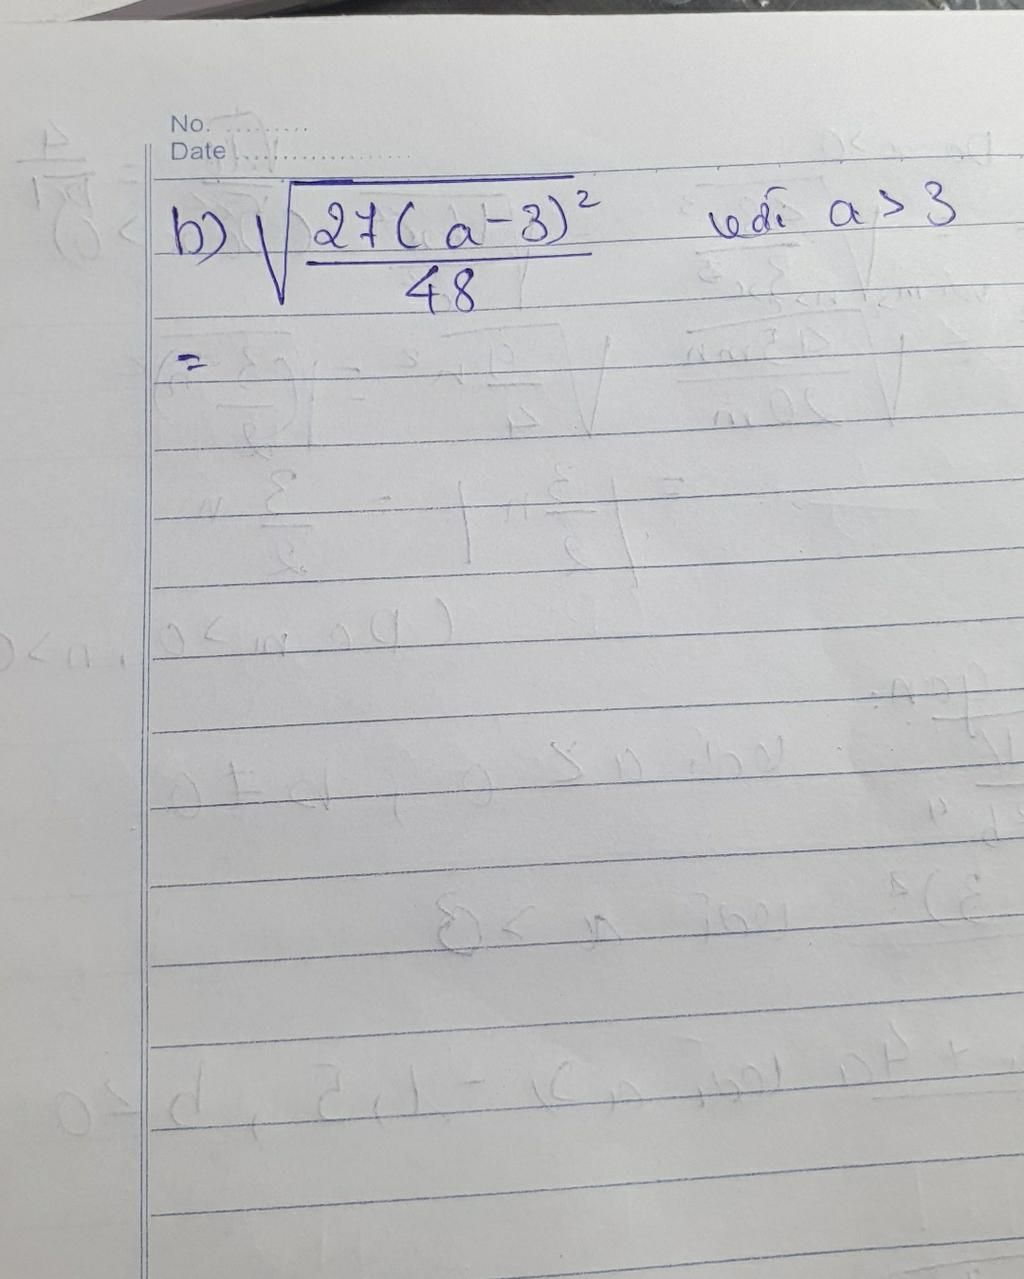 No. ..........
Date ....................
b) √(27(a-3)²/48) với a > 3
=